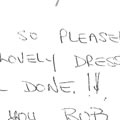 SO PLEASE
LOVELY DRESS
DONE.!!
YOU BOB,